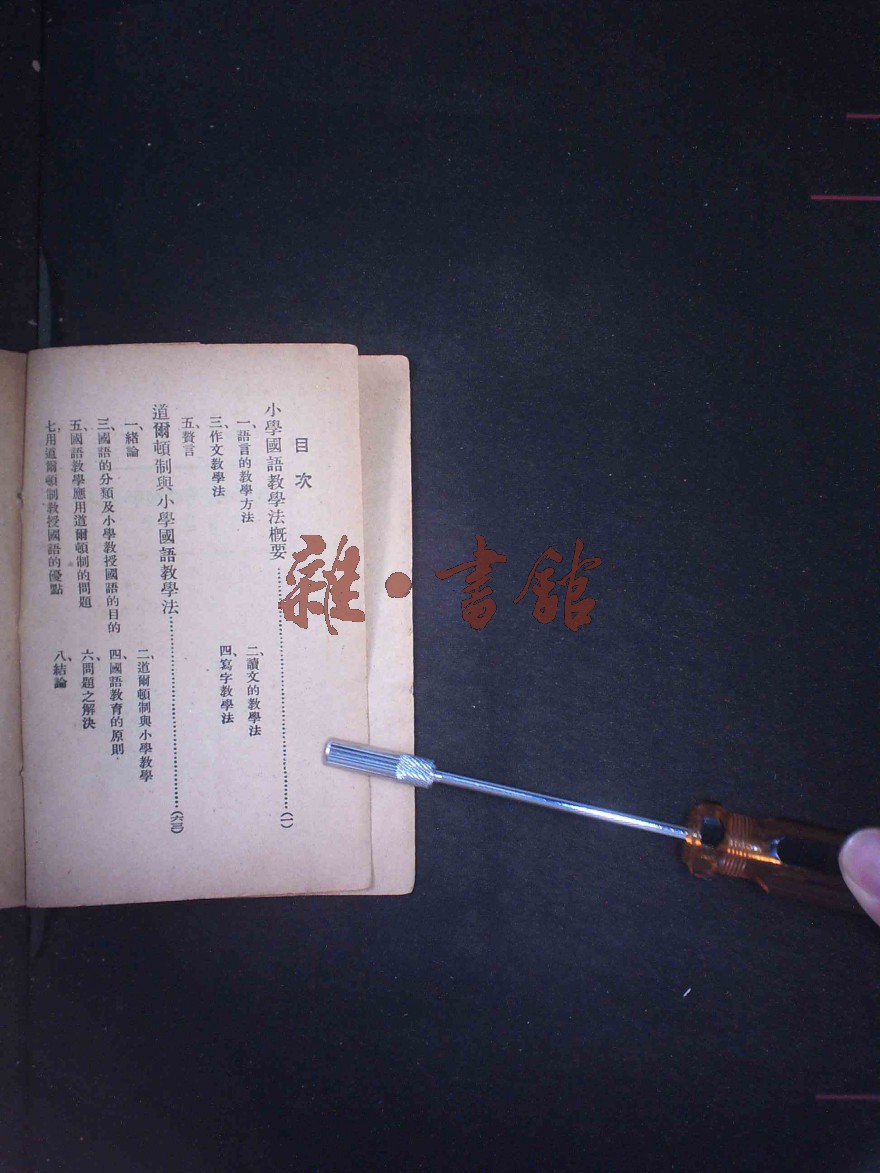 目次
小學國語教學法概要⋯⋯⋯⋯⋯⋯⋯⋯(一)
一、語言的教學方法
二、讀文的教學法
三、作文教學法
四、寫字教學法
五、贅言
道爾頓制與小學國語教學法⋯⋯⋯⋯⋯⋯(六三)
一、緒論
二、道爾頓制與小學教學
三、國語的分類及小學教授國語的目的
四、國語教育的原則
五、國語教學應用道爾頓制的問題
六、問題之解決
七、用道爾頓制教授國語的優點
八、結論
雜·書館